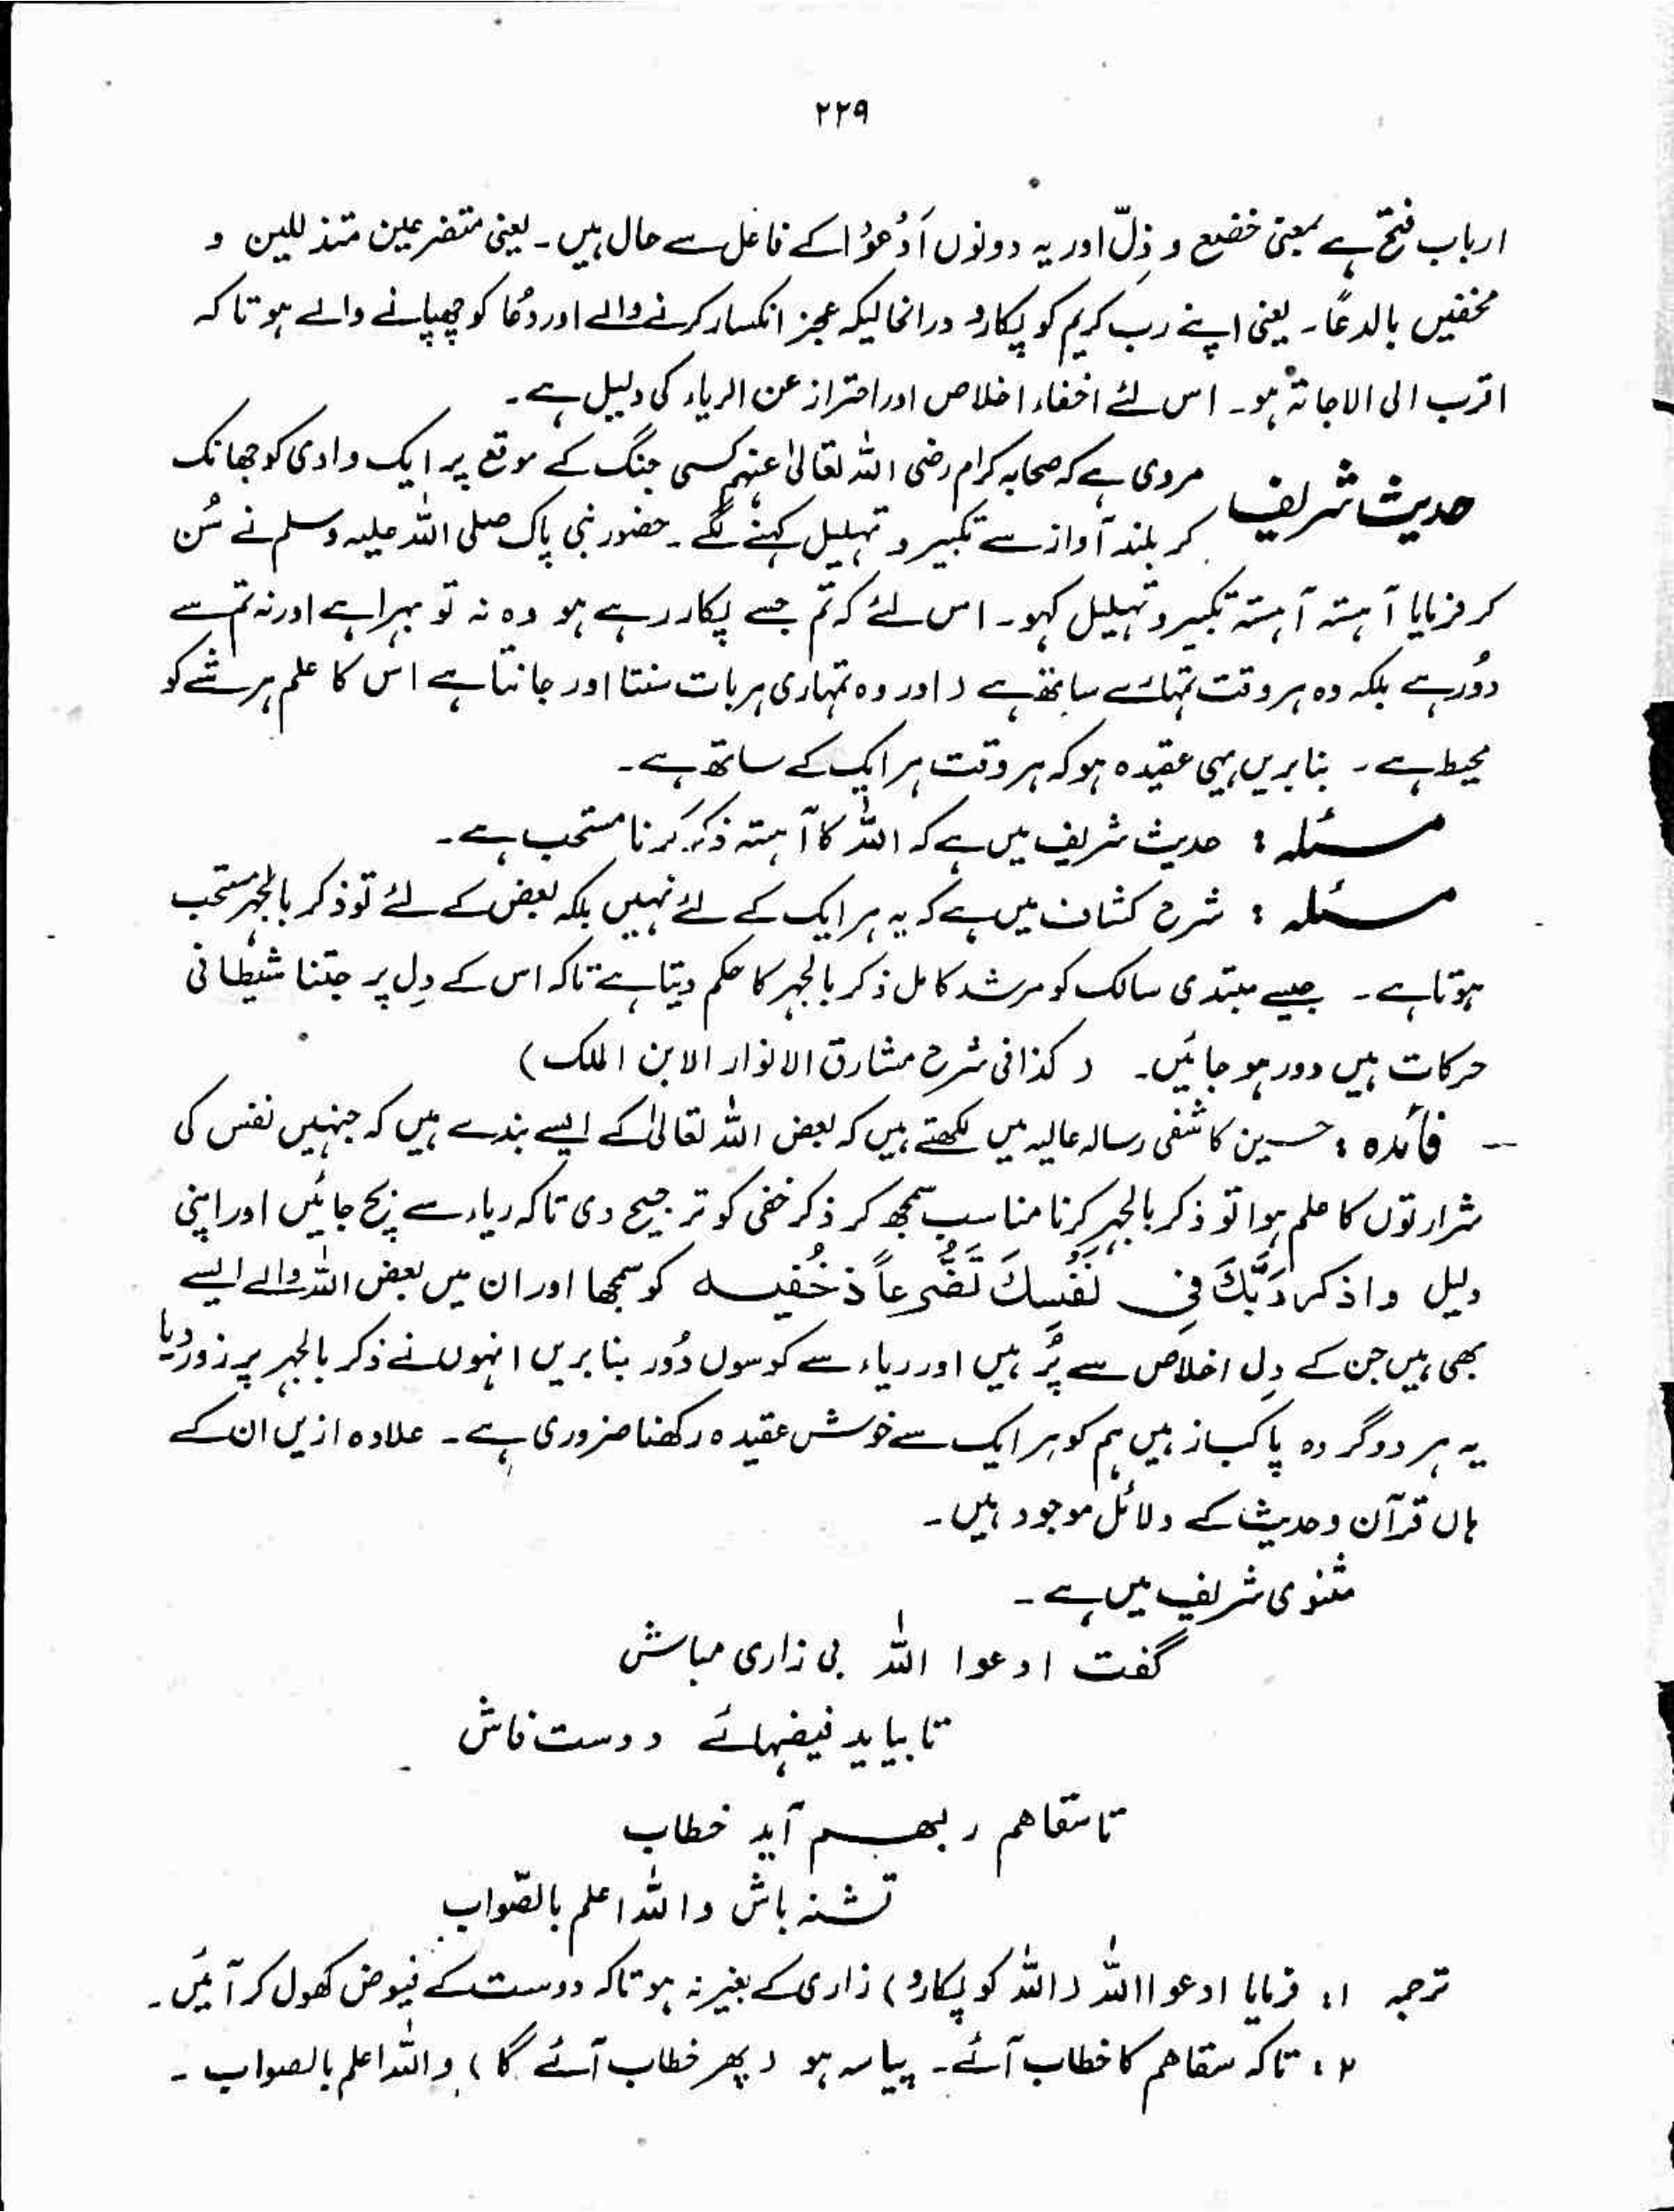 ۲۲۹
ارباب فتح ہے بمعنی خضع و ذِلّ اور یہ دونوں اَدُعوُا کے فاعل سے حال ہیں۔ یعنی متضرعین متذللین و
مخفیں بالدعاً۔ یعنی اپنے رب کریم کو پکارو درانحالیکہ عجز انکسار کرنے والے اور دعُا کو چھپانے والے ہو تاکہ
اقرب الی الاجابۃ ہو۔ اس لئے اخفاء اخلاص اور احتراز عن الریاء کی دلیل ہے۔
حدیث شریف مروی ہے کہ صحابہ کرام رضی اللہ تعالیٰ عنہم کسی جنگ کے موقع پر ایک وادی کو جھانک
کر بلند آواز سے تکبیر و تہلیل کہنے لگے۔ حضور نبی پاک صلی اللہ علیہ وسلم نے سُن
کر فرمایا آہستہ آہستہ تکبیر و تہلیل کہو۔ اس لئے کہ تم جسے پکار رہے ہو وہ نہ تو بہرا ہے اور نہ تم سے
دوُر ہے بلکہ وہ ہر وقت تمہارے ساتھ ہے (اور وہ تمہاری ہر بات سنتا اور جانتا ہے اس کا علم ہر شے کو
محیط ہے۔ بنا بریں یہی عقیدہ ہو کہ ہر وقت ہر ایک کے ساتھ ہے۔
مسئلہ : حدیث شریف میں ہے کہ اللہ کا آہستہ ذکر کرنا مستحب ہے۔
مسئلہ : شرح کشاف میں ہے کہ یہ ہر ایک کے لئے نہیں بلکہ بعض کے لئے تو ذکر بالجہر مستحب
ہوتا ہے۔ جیسے مبتدی سالک کو مرشد کامل ذکر بالجہر کا حکم دیتا ہے تاکہ اس کے دِل پر جتنا شیطانی
حرکات ہیں دور ہو جائیں۔ (کذافی شرح مشارق الانوار الابن الملک)
— فائدہ : حسین کاشفی رسالہ عالیہ میں لکھتے ہیں کہ بعض اللہ تعالیٰ کے ایسے بندے ہیں کہ جنہیں نفس کی
شرارتوں کا علم ہوا تو ذکر بالجہر کرنا مناسب سمجھ کر ذکر خفی کو ترجیح دی تاکہ ریاء سے بچ جائیں اور اپنی
دلیل واذکر رَبَّكَ فِی نَفُسِكَ تَضَّرعاً ذخُفیہ کو سمجھا اور ان میں بعض اللہ والے ایسے
بھی ہیں جن کے دِل اخلاص سے پُر ہیں اور ریاء سے کوسوں دُور بنا بریں انہوں نے ذکر بالجہر پر زور دیا
یہ ہر دو گروہ پاکباز ہیں ہم کو ہر ایک سے خوش عقیدہ رکھنا ضروری ہے۔ علاوہ ازیں ان کے
ہاں قرآن و حدیث کے دلائل موجود ہیں۔
مثنوی شریف میں ہے۔
گفت ادعوا اللہ بی زاری مباش
تا بیاید فیضہائے دوست فاش
تا سقاهم ربهم آید خطاب
تشنہ باش واللہ اعلم بالصّواب
ترجمہ ۱: فرمایا ادعوا اللہ (اللہ کو پکارو) زاری کے بغیر نہ ہو تاکہ دوست کے فیوض کھول کر آئیں۔
۲ : تاکہ سقاهم کا خطاب آئے۔ پیاسہ ہو (پھر خطاب آئے گا) واللہ اعلم بالصواب۔